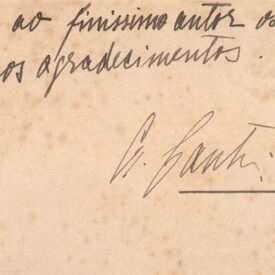 ao finissimo autor os
nos agradecimentos.